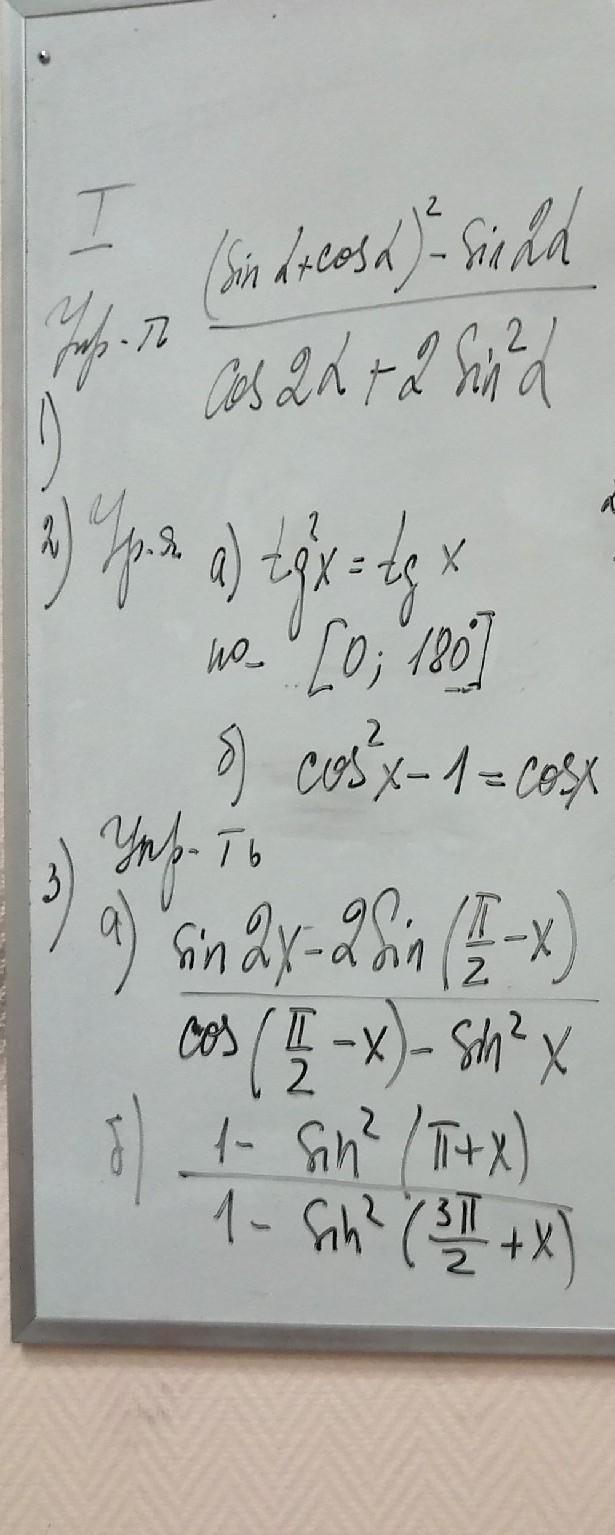 I
Упр-ть
(sin α+cosα)² - sin2α
cos2α + 2 sin²α
1)
2) Ур-я а) tg²x = tg x
на [0; 180°]
б) cos²x - 1 = cosx
3) Упр-ть
а) sin 2x - 2 sin (π/2 - x)
cos (π/2 - x) - sin² x
б) 1 - sin² (π+x)
1 - sin² (3π/2 + x)